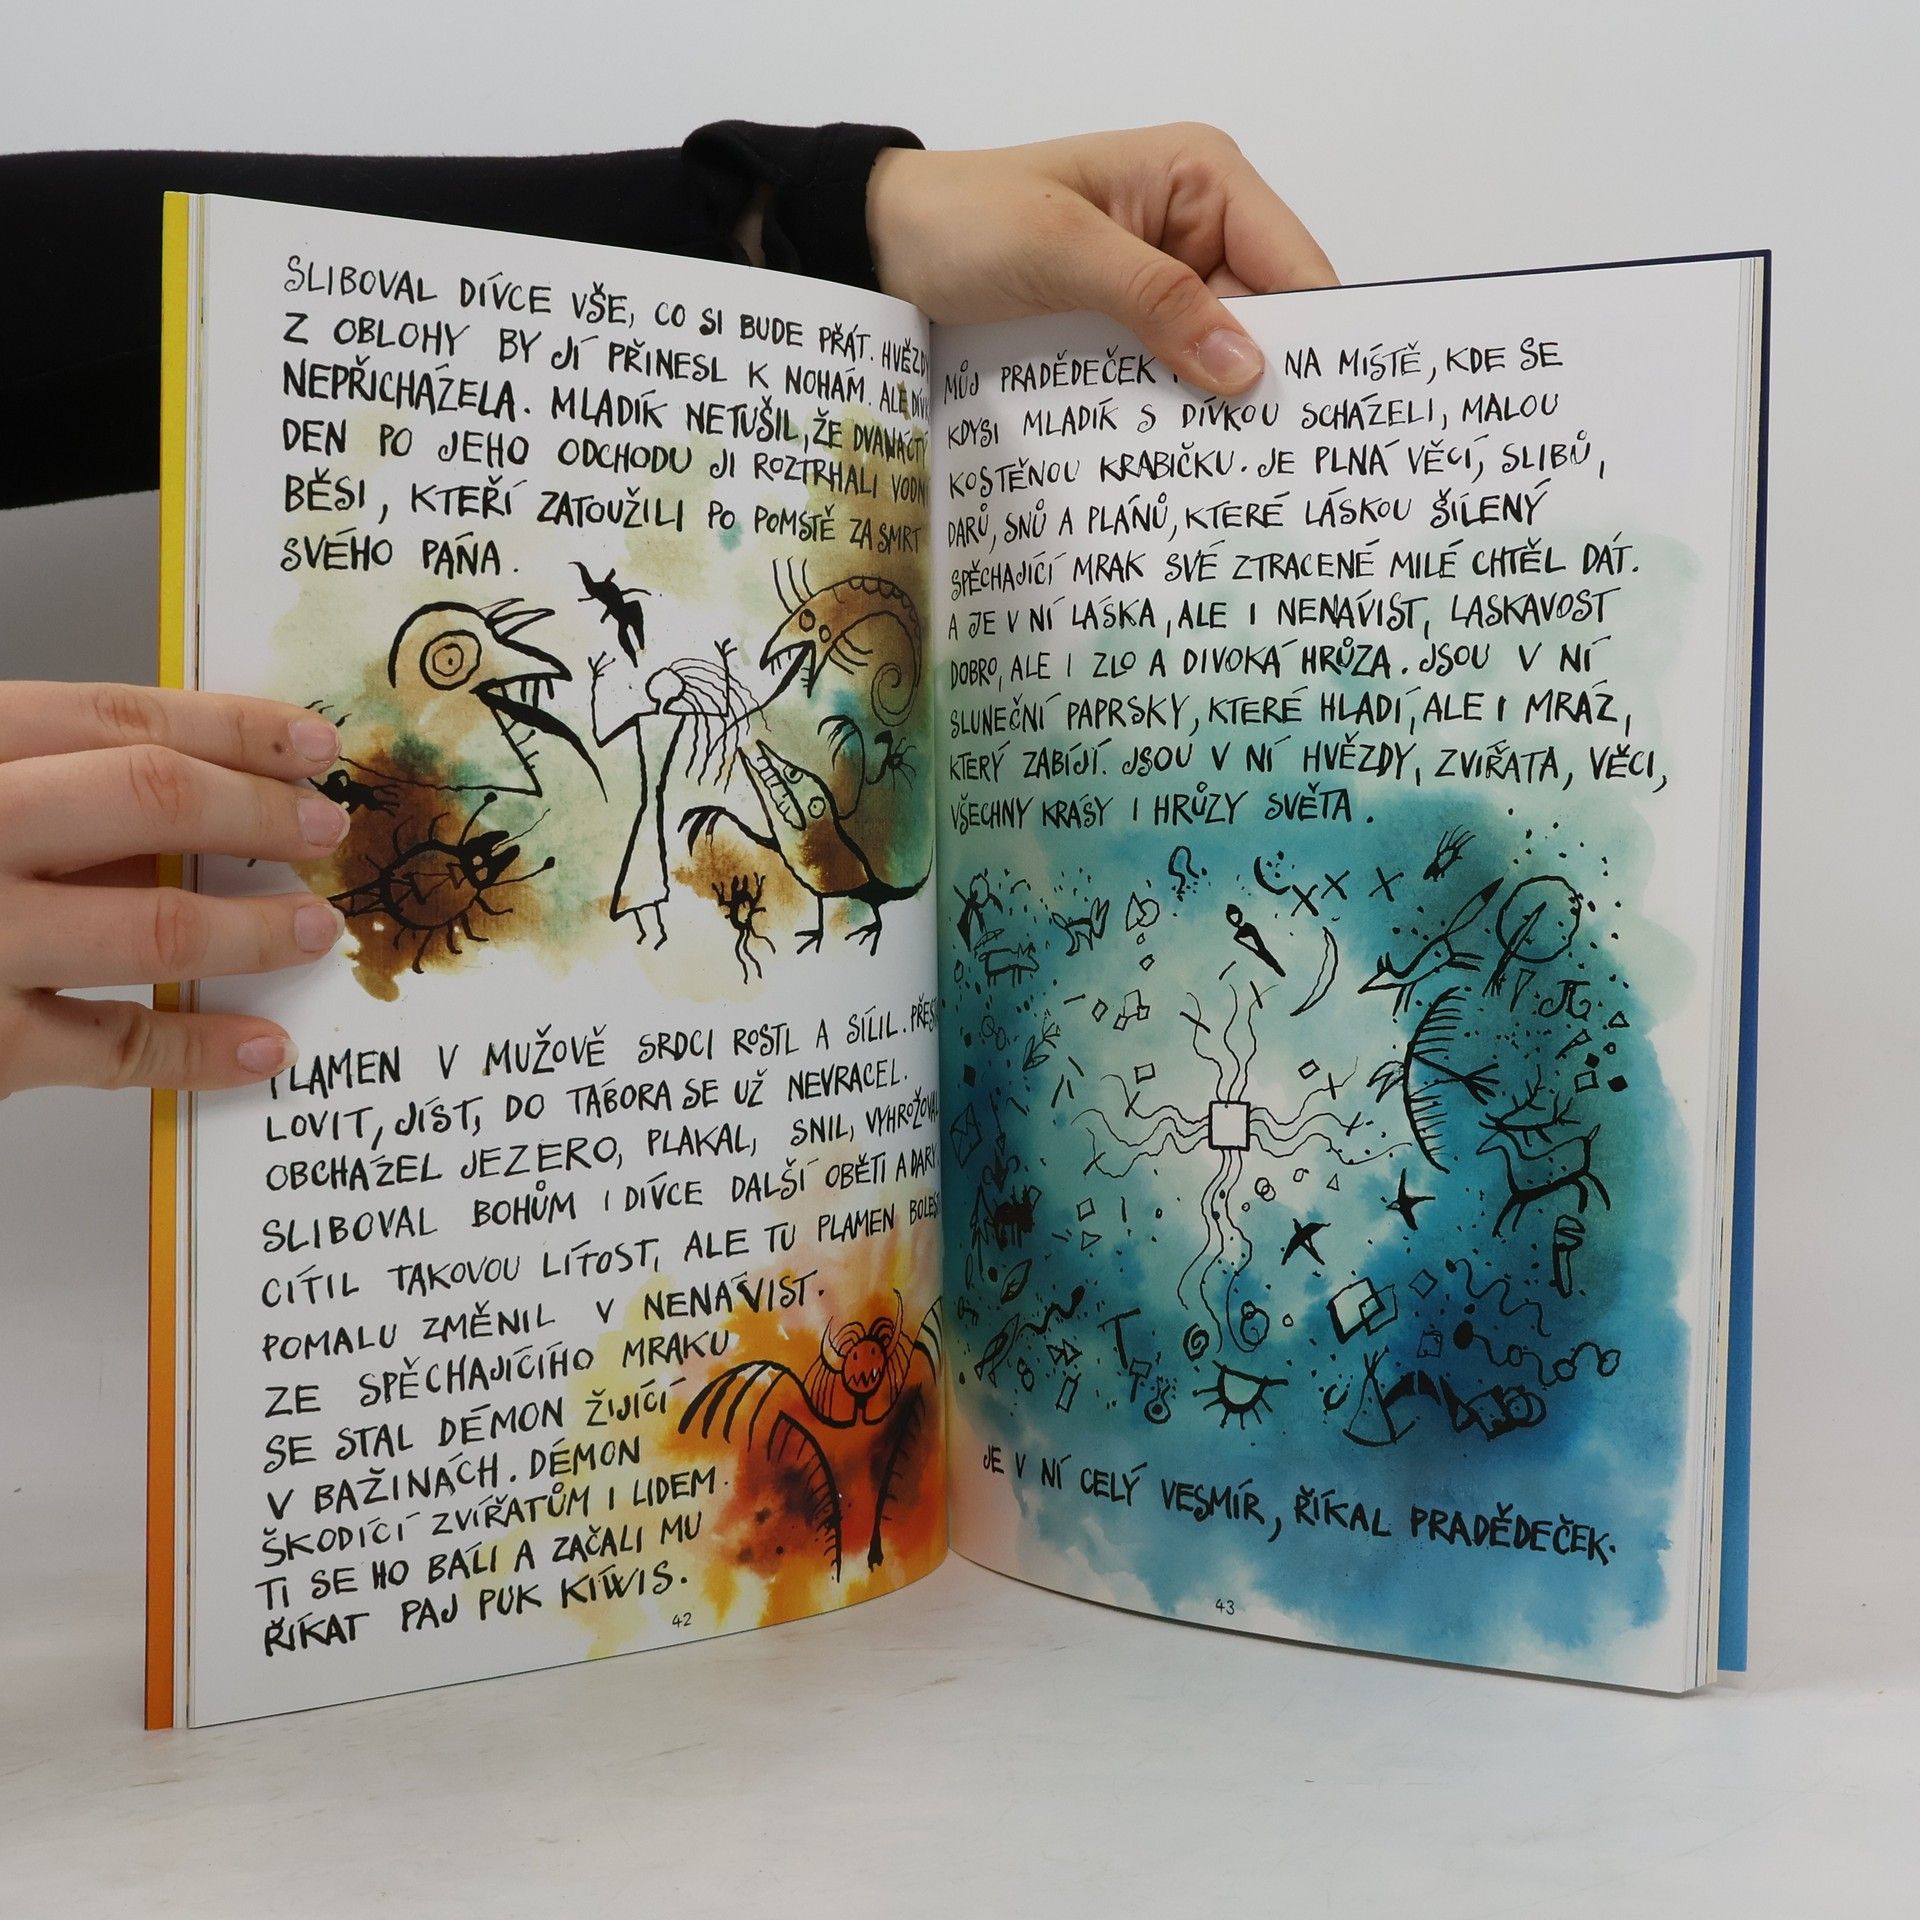 SLIBOVAL DÍVCE VŠE, CO SI BUDE PŘÁT. HVĚZDY
Z OBLOHY BY JÍ PŘINESL K NOHÁM. ALE DÍVKA
NEPŘICHÁZELA. MLADÍK NETUŠIL, ŽE DVANÁCTÝ
DEN PO JEHO ODCHODU JI ROZTRHALI VODNÍ
BĚSI, KTEŘÍ ZATOUŽILI PO POMSTĚ ZA SMRT
SVÉHO PÁNA.
PLAMEN V MUŽOVĚ SRDCI ROSTL A SÍLIL.
LOVIT, JÍST, DO TÁBORA SE UŽ NEVRACEL.
OBCHÁZEL JEZERO, PLAKAL, SNIL, VYHROŽOVAL
SLIBOVAL BOHŮM I DÍVCE DALŠÍ OBĚTI A DARY.
CÍTIL TAKOVOU LÍTOST, ALE TU PLAMEN BOLESTI
POMALU ZMĚNIL V NENÁVIST.
ZE SPĚCHAJÍCÍHO MRAKU
SE STAL DÉMON ŽIJÍCÍ
V BAŽINÁCH. DÉMON
ŠKODÍCÍ ZVÍŘATŮM I LIDEM.
TI SE HO BÁLI A ZAČALI MU
ŘÍKAT PAJ PUK KIWIS.
42
MŮJ PRADĚDEČEK NA MÍSTĚ, KDE SE
KDYSI MLADÍK S DÍVKOU SCHÁZELI, MALOU
KOSTĚNOU KRABIČKU. JE PLNÁ VĚCÍ, SLIBŮ,
DARŮ, SNŮ A PLÁNŮ, KTERÉ LÁSKOU ŠÍLENÝ
SPĚCHAJÍCÍ MRAK SVÉ ZTRACENÉ MILÉ CHTĚL DÁT.
A JE V NÍ LÁSKA, ALE I NENÁVIST, LASKAVOST
DOBRO, ALE I ZLO A DIVOKÁ HRŮZA. JSOU V NÍ
SLUNEČNÍ PAPRSKY, KTERÉ HLADÍ, ALE I MRÁZ,
KTERÝ ZABÍJÍ. JSOU V NÍ HVĚZDY, ZVÍŘATA, VĚCI,
VŠECHNY KRÁSY I HRŮZY SVĚTA.
JE V NÍ CELÝ VESMÍR, ŘÍKAL PRADĚDEČEK.
43